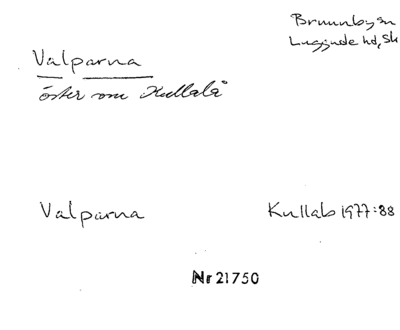 Brunnby sn
Luggude hd, Sk
Valparna
öster om Kullalå
Valparna
Kullab 1977:88
Nr 21750